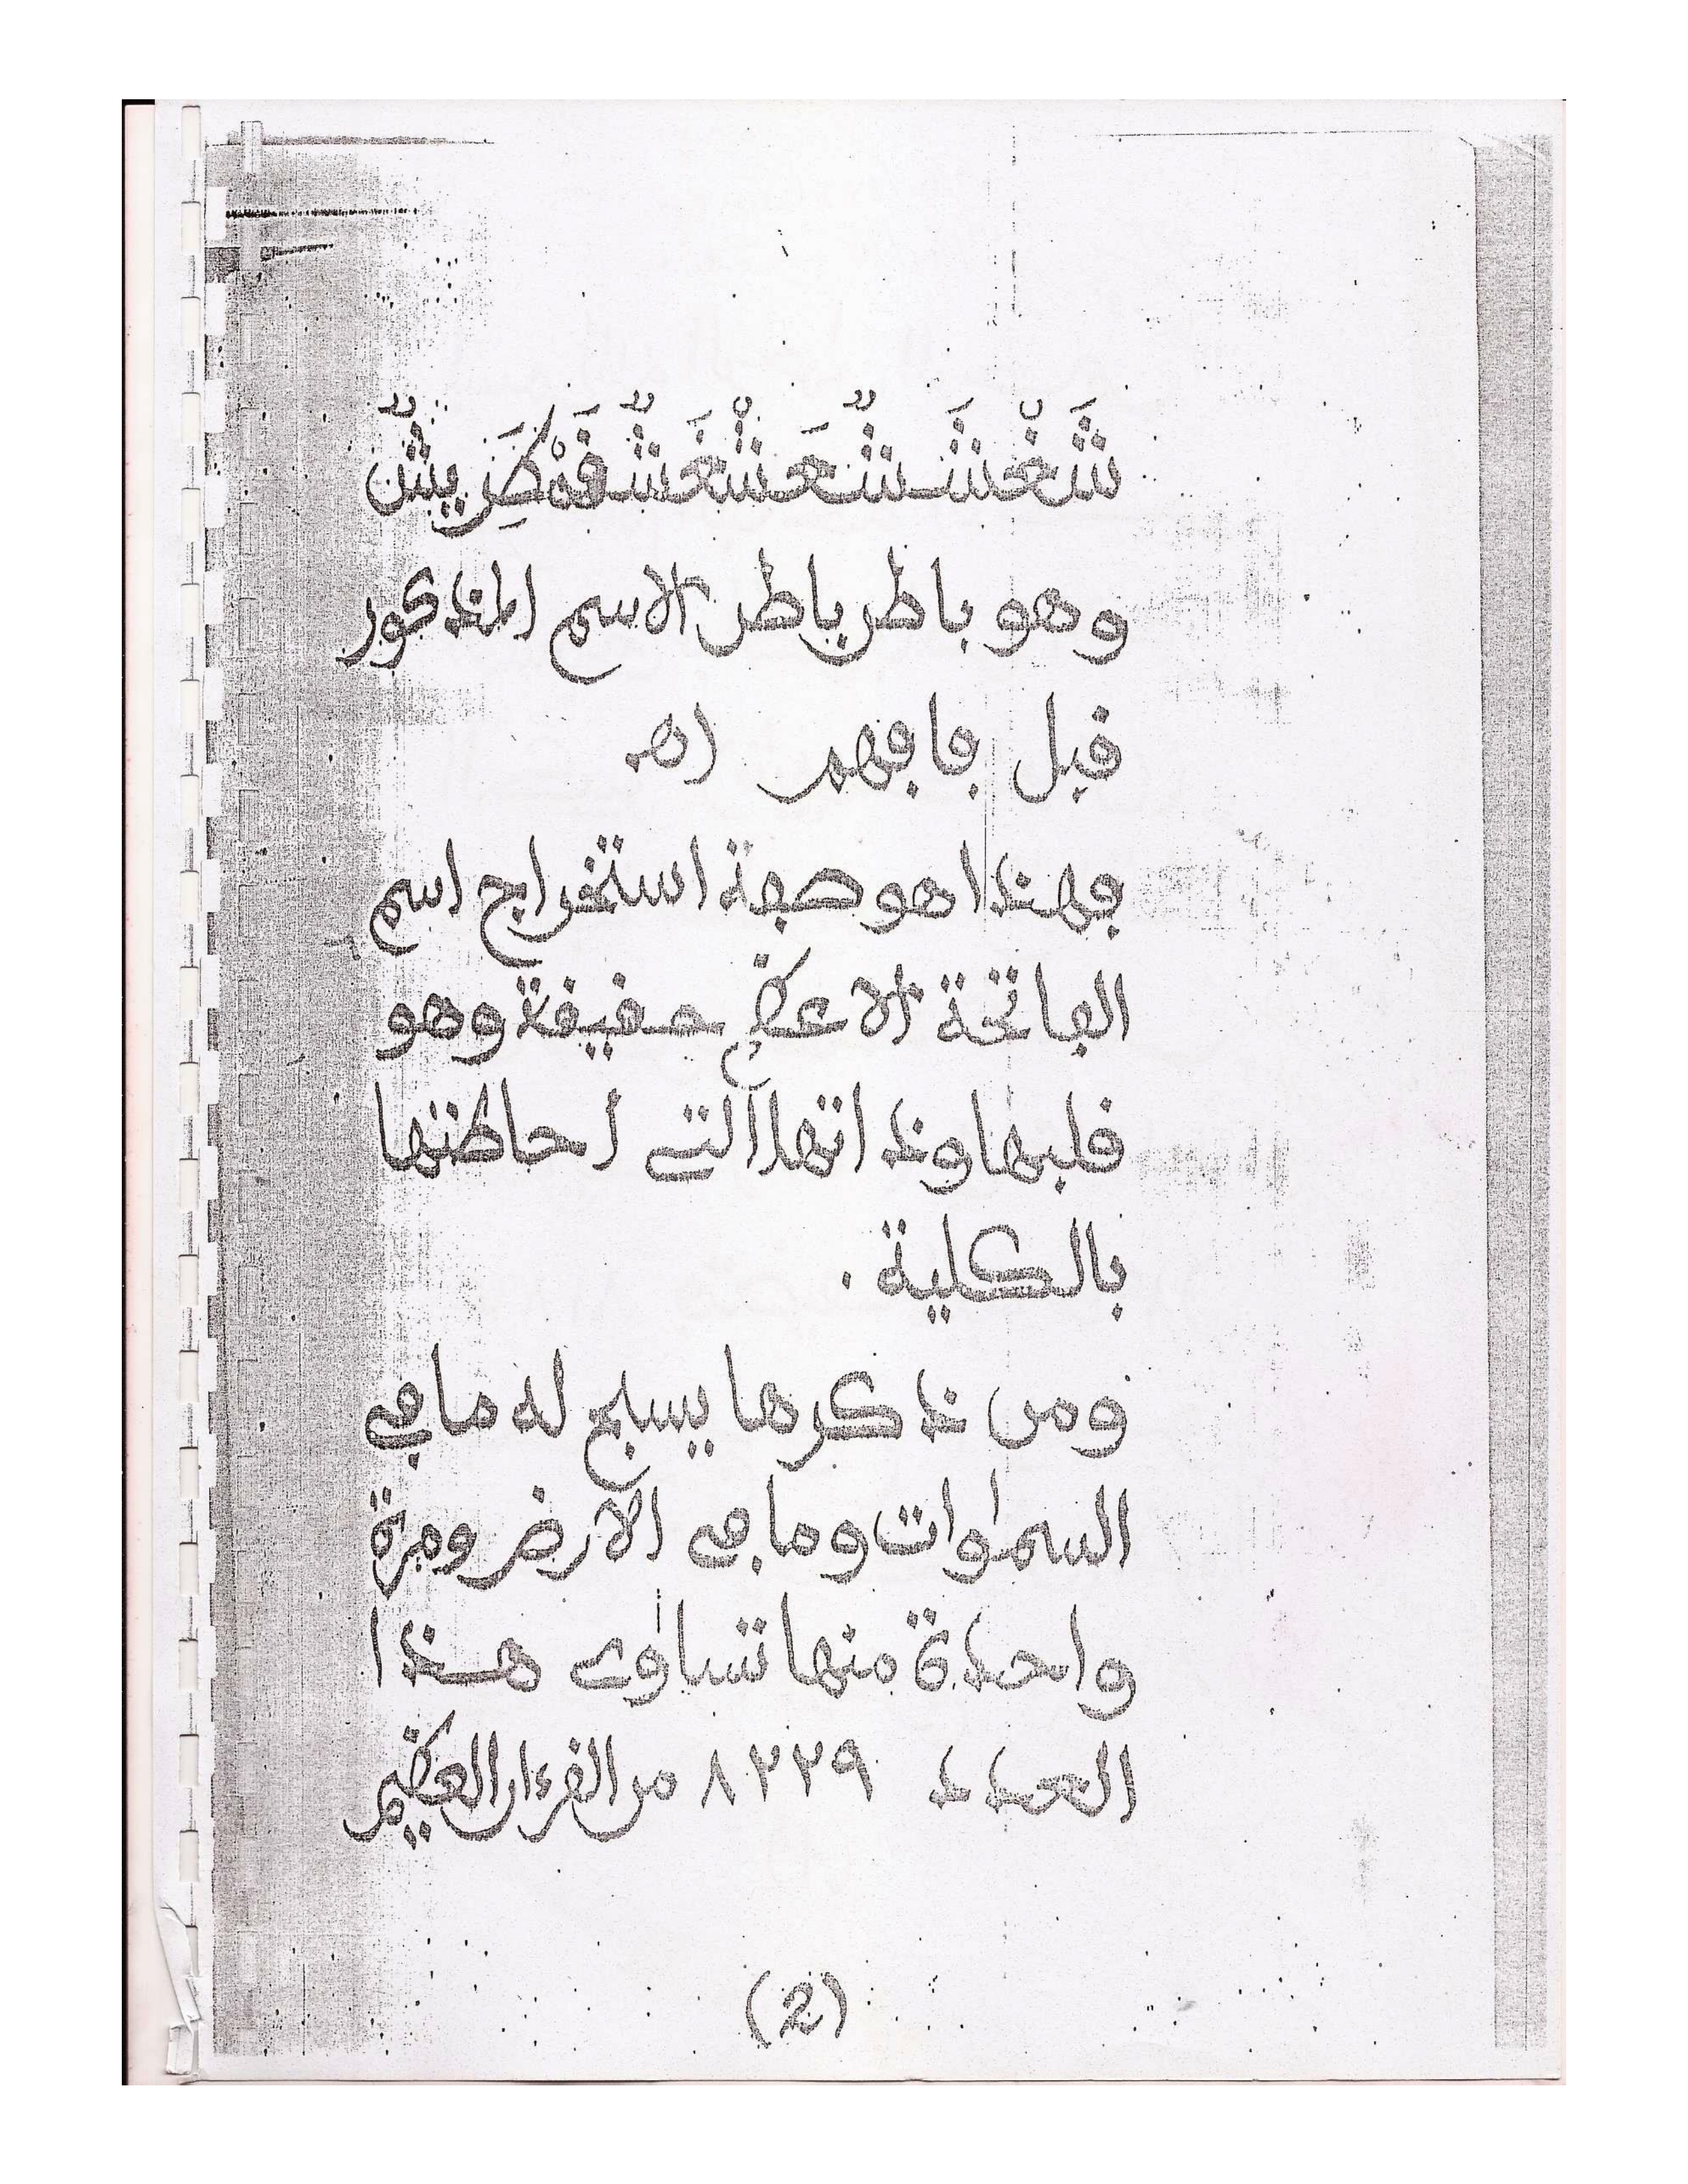 وهو باطر باطر الاسم المذكور
قبل فافهم اهـ
فهذا هو صفة استخراج اسم
الفاتحة الاعظم حقيقة وهو
قلبها وذاتها التى احاطتها
بالكلية .
ومن ذكرها يسبح له ما فى
السمٰوات وما فى الارض ومرة
واحدة منها تساوى هذا
العدد ٨٢٢٩ من القرءان العظيم
(2)